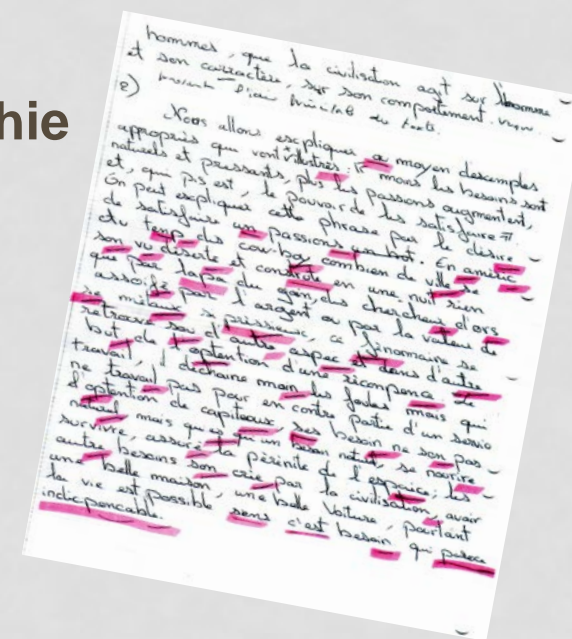 hie
hommes, que la civilisation agit sur l'homme
et son carractère, sur son comportement.
2)
Nous allons escpliquer, a moyen descemples
appropriés qui vont illustrés: " moins les besoins sont
naturels et pressants, plus les passons augmentent,
et, qui pis est, le pouvoir de les satisfaire ".
On peut escpliquer cette phrase par le désire
de satisfaire passions. En améric
du temps des combien de ville se
son vu déserte et constrote en une nuit rien
que par lapa du gan, des chercheur d'ors
assoifé par l'argent ou par la valeur de
se métau si présseus, ce fénomaine se
retrouve sou d'autre aspec et dans d'autre
but de l'optention d'une récompence. Le
travail, déchaine moin les foules mais qui
ne travail pas pour en contre partie d'un servio
d'optention de capiteaux, ses besoin ne son pas
naturel mais qui es qu'un besoin naturel, se nourire
survivre, assur la périnité de l'espaice; les
autre besoins son crée par la civilisation, avoir
une belle maison, une belle voiture, pourtant
la vie est possible sens c'est besoin qui
indicpencable.